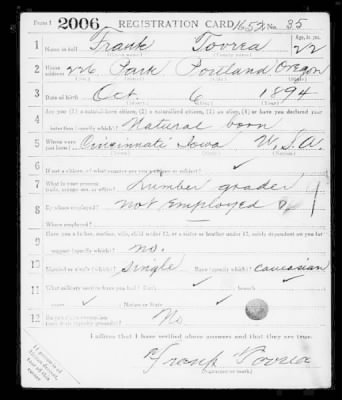 Form 1 2006 REGISTRATION CARD 1652 No. 35
1 Name in full Frank Tovrea Age, in yrs. 22
2 Home address 226 Park Portland Oregon
3 Date of birth Oct 6 1894
4 Are you (1) a natural-born citizen, (2) a naturalized citizen, (3) an alien, (4) or have you declared your
intention (specify which)? Natural born
5 Where were you born? Cincinnati Iowa U.S.A.
6 If not a citizen, of what country are you a citizen or subject?
7 What is your present trade, occupation, or office? Lumber grader
8 By whom employed? Not Employed
Where employed?
9 Have you a father, mother, wife, child under 12, or a sister or brother under 12, solely dependent on you for
support (specify which)? no.
10 Married or single (which)? Single Race (specify which)? Caucasian
11 What military service have you had? Rank branch
years Nation or State
12 Do you claim exemption from draft (specify grounds)? No
I affirm that I have verified above answers and that they are true.
Frank Tovrea
(Signature or mark)